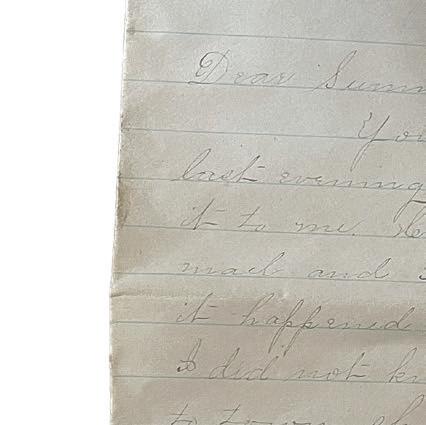 Dear Summ
You
last evening
it to me. He
mail and
it happened
I did not kn
to town